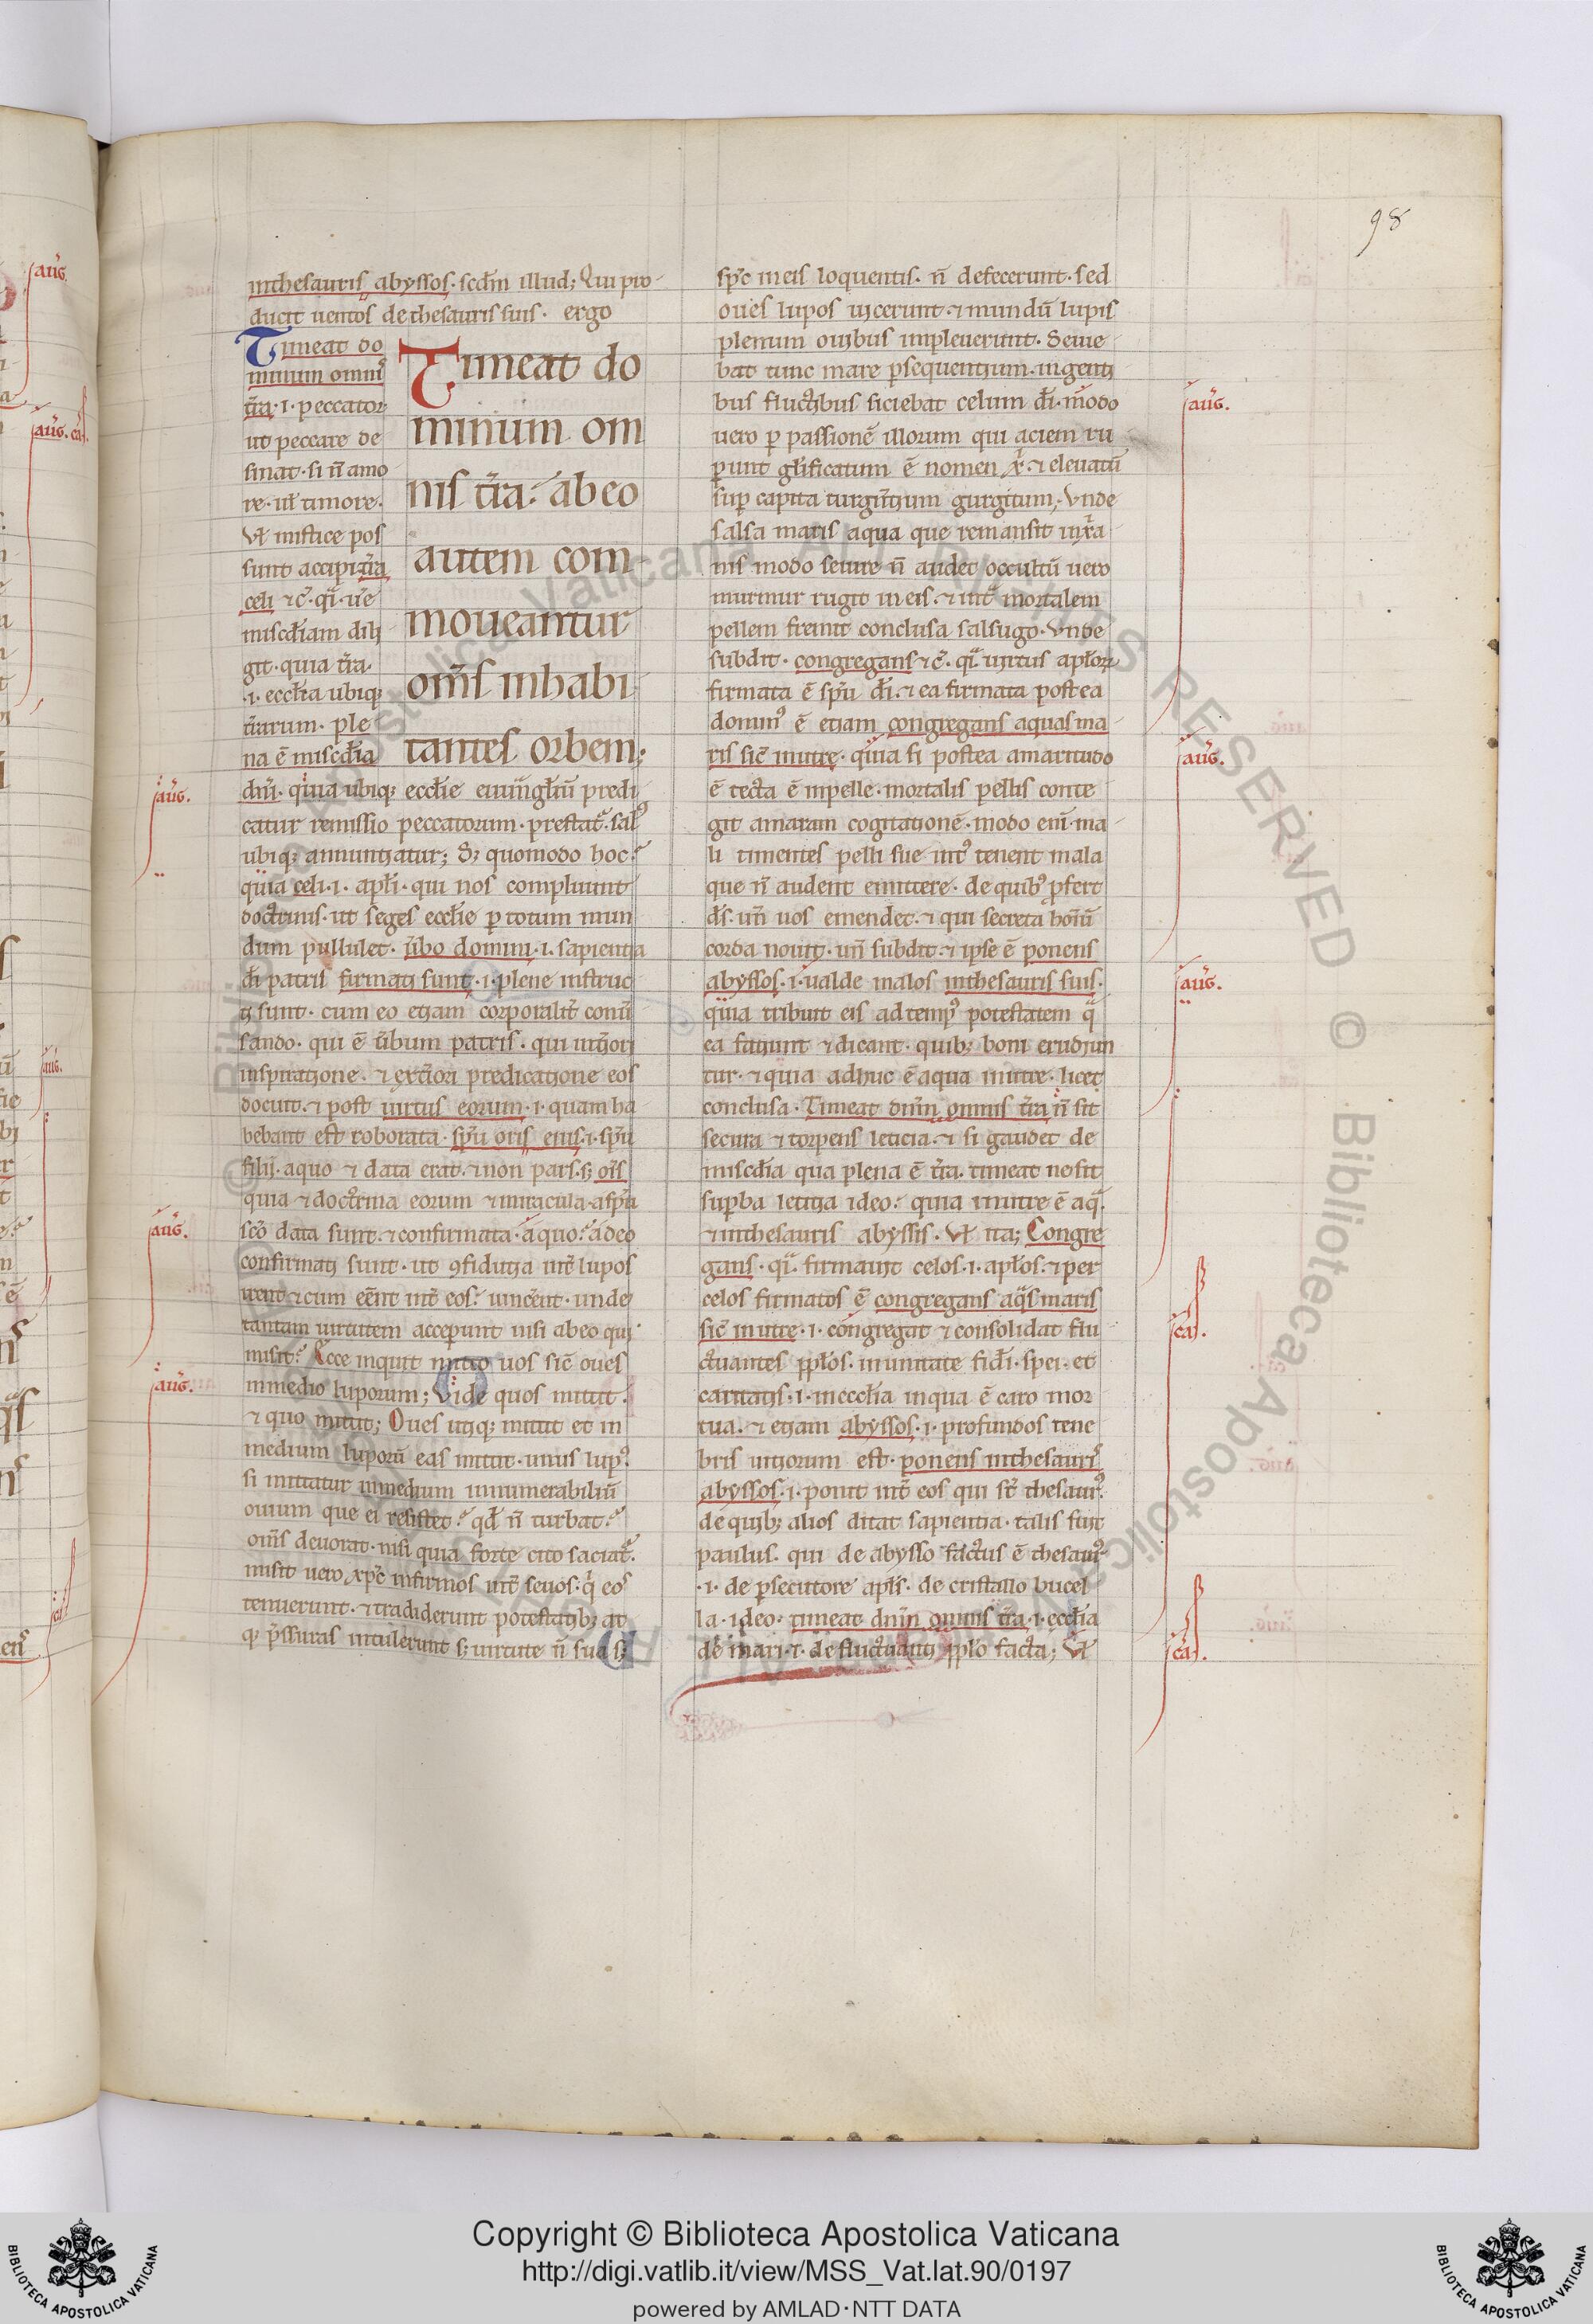 98
inthesauris abyssos. scdm illud; Qui pro
ducit uentos dethesauris suis. ergo
Timeat do
minum omnis
tra. i. peccator
ut peccare de
sinat. si n amo
re. ul timore.
Ul mistice pos
sunt accipi tra
celi
miscdiam dili
git. quia tra
.i. ecclia ubiq;
trarum. ple
na ē miscdia
Timeat do
minum om
nis tra: abeo
autem com
moueantur
oms inhabi
tantes orbem;
dni. quia ubiq; ecclie euuglium predi
catur remissio peccatorum. prestat. sal
ubiq; annuntiatur; S; quomodo hoc?
quia celi. i. apli. qui nos compluunt
doctrinis. ut seges ecclie p totum mun
dum pullulet. ubo domini. i. sapientia
di patris firmati sunt. i. plene instruc
ti sunt. cum eo etiam corporalit conu
sando. qui ē ubum patris. qui
inspiratione. et exteriori predicatione eos
docuit. et post uirtus eorum. i. quam ha
bebant est roborata. spu oris eius. i. spu
filii. aquo et data erat. et non pars. s; ois
quia et doctrina eorum et miracula. aspu
sco data sunt. et confirmata. aquo? adeo
confirmati sunt. ut 9fidutia int lupos
irent et cum eent int eos? uincent. unde
tantam uirtutem acceperunt nisi abeo qui
misit? Ecce inquit mitto uos sic oues
inmedio luporum; Vide quos mittit.
et quo mittit; Oues utiq; mittit et in
medium luporu eas mittit. unus lup9
si mittatur inmedium innumerabiliu
ouium que ei resistet? qd n turbat?
oms deuorat. nisi quia forte cito saciat.
misit uero xpc infirmos int seuos. q eos
tenuerunt. et tradiderunt potestatib; at
q; pssuras intulerunt s; uirtute n sua s;
spc ineis loquentis. n defecerunt. sed
oues lupos uicerunt. et mundu lupis
plenum ouibus impleuerunt. Seuie
bat tunc mare psequentium. ingenti
bus fluctibus siciebat celum di. modo
uero p passione illorum qui aciem ru
punt glificatum ē nomen x. et eleuatu
sup capita turgentium gurgitum; Vnde
salsa maris aqua que remansit
nis modo seuire n audet occultu uero
murmur rugit ineis. et int mortalem
pellem fremit conclusa salsugo. Vnde
subdit. congregans et c. q. uirtus aplorum
firmata ē spu di. et ea firmata postea
domin9 ē etiam congregans aquas ma
ris sic inutre. quia si postea amaritudo
ē tecta ē inpelle. mortalis pellis conte
git amaram cogitatione. modo eni ma
li timentes pelli sue int9 tenent mala
que n audent emittere. de quib9 pfert
ds. un uos emendet. et qui secreta hoiu
corda nouit. un subdit. et ipse ē ponens
abyssos. i. ualde malos inthesauris suis.
quia tribuit eis ad temp9 potestatem q
ea faciunt et dicant. quib; boni erudiun
tur. et quia adhuc ē aqua inutre. licet
conclusa. Timeat dnm omnis tra n sit
secura et torpens leticia. et si gaudet de
miscdia qua plena ē tra. timeat ne sit
supba letitia ideo: quia inutre ē aq.
et inthesauris abyssis. Ul ita; Congre
gans. q. firmauit celos. i. aplos. et per
celos firmatos ē congregans aqs maris
sic inutre. i. congregat et consolidat flu
ctuantes pplos. inunitate fidi. spei. et
caritatis. i. inecclia inqua ē caro mor
tua. et etiam abyssos. i. profundos tene
bris uitiorum est. ponens inthesauris
abyssos. i. ponit int eos qui st thesaur9
de quib; alios ditat sapientia. talis fuit
paulus. qui de abysso factus ē thesaur9
.i. de psecutore apls. de cristallo bucel
la. ideo: timeat dnm omnis tra. i. ecclia
de mari. i. de fluctuanti pplo facta; Ul
aug.
aug.
aug.
aug.
aug.
aug.
ca.
ca.
Copyright © Biblioteca Apostolica Vaticana
http://digi.vatlib.it/view/MSS_Vat.lat.90/0197
powered by AMLAD·NTT DATA
BIBLIOTECA APOSTOLICA VATICANA
BIBLIOTECA APOSTOLICA VATICANA